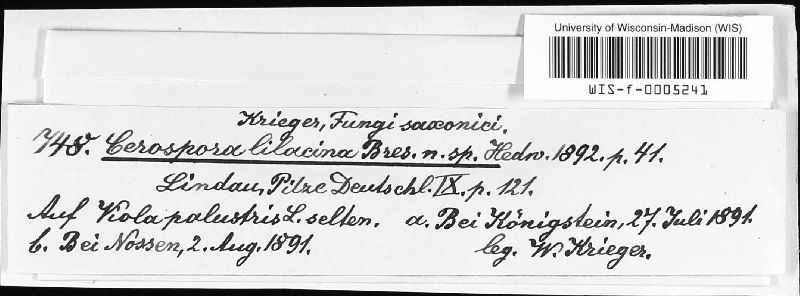 University of Wisconsin-Madison (WIS)
WIS-f-0005241
Krieger, Fungi saxonici.
748. Cerospora lilacina Bres. n. sp. Hedw. 1892. p. 41.
Lindau, Pilze Deutschl. IX. p. 121.
Auf Viola palustris L. selten. a. Bei Königstein, 27. Juli 1891.
b. Bei Nossen, 2. Aug. 1891. leg. W. Krieger.